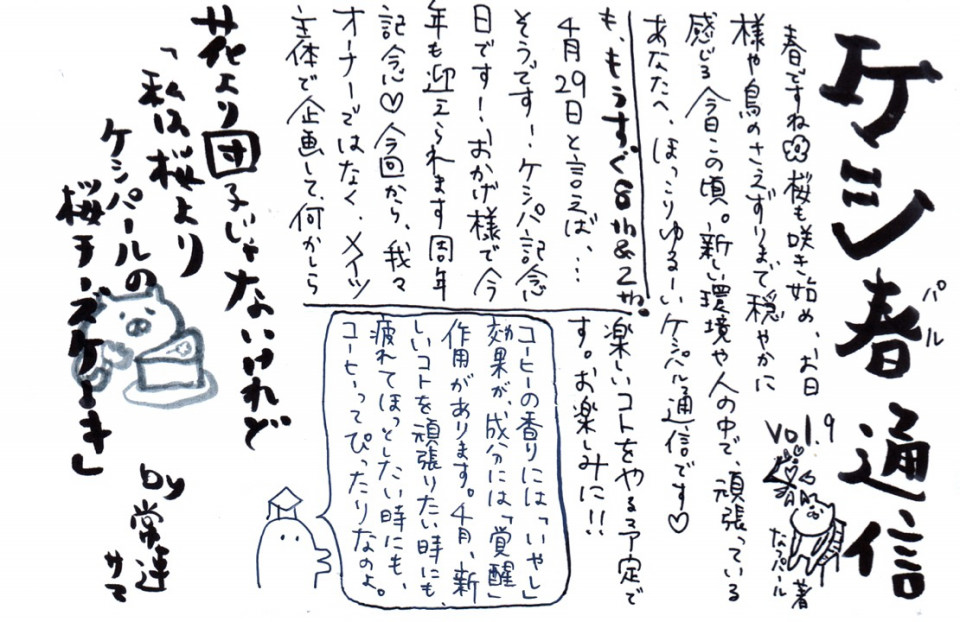 ケシ春通信
パル
vol.9
なつパール著
春ですね桜も咲き始め、お日
様や鳥のさえずりまで穏やかに
感じる今日この頃。新しい環境や人の中で、頑張っている
あなたへ、ほっこりゆるーいケシパル通信です♡
も、もうすぐ8th&2th。
4月29日と言えば、…
そうです！ケシパ記念
日です！おかげ様で今
年も迎えられます周年
記念♡今回から、我々
オーナーではなく、メイツ
主体で企画して、何かしら
楽しいコトをやる予定で
す。お楽しみに!!
コーヒーの香りには「いやし」
効果が、成分には「覚醒」
作用があります。4月、新
しいコトを頑張りたい時にも、
疲れてほっとしたい時にも、
コーヒーってぴったりなのよ。
花より団子じゃないけれど
「私は桜より
ケシパールの
桜チーズケーキ」
by常連